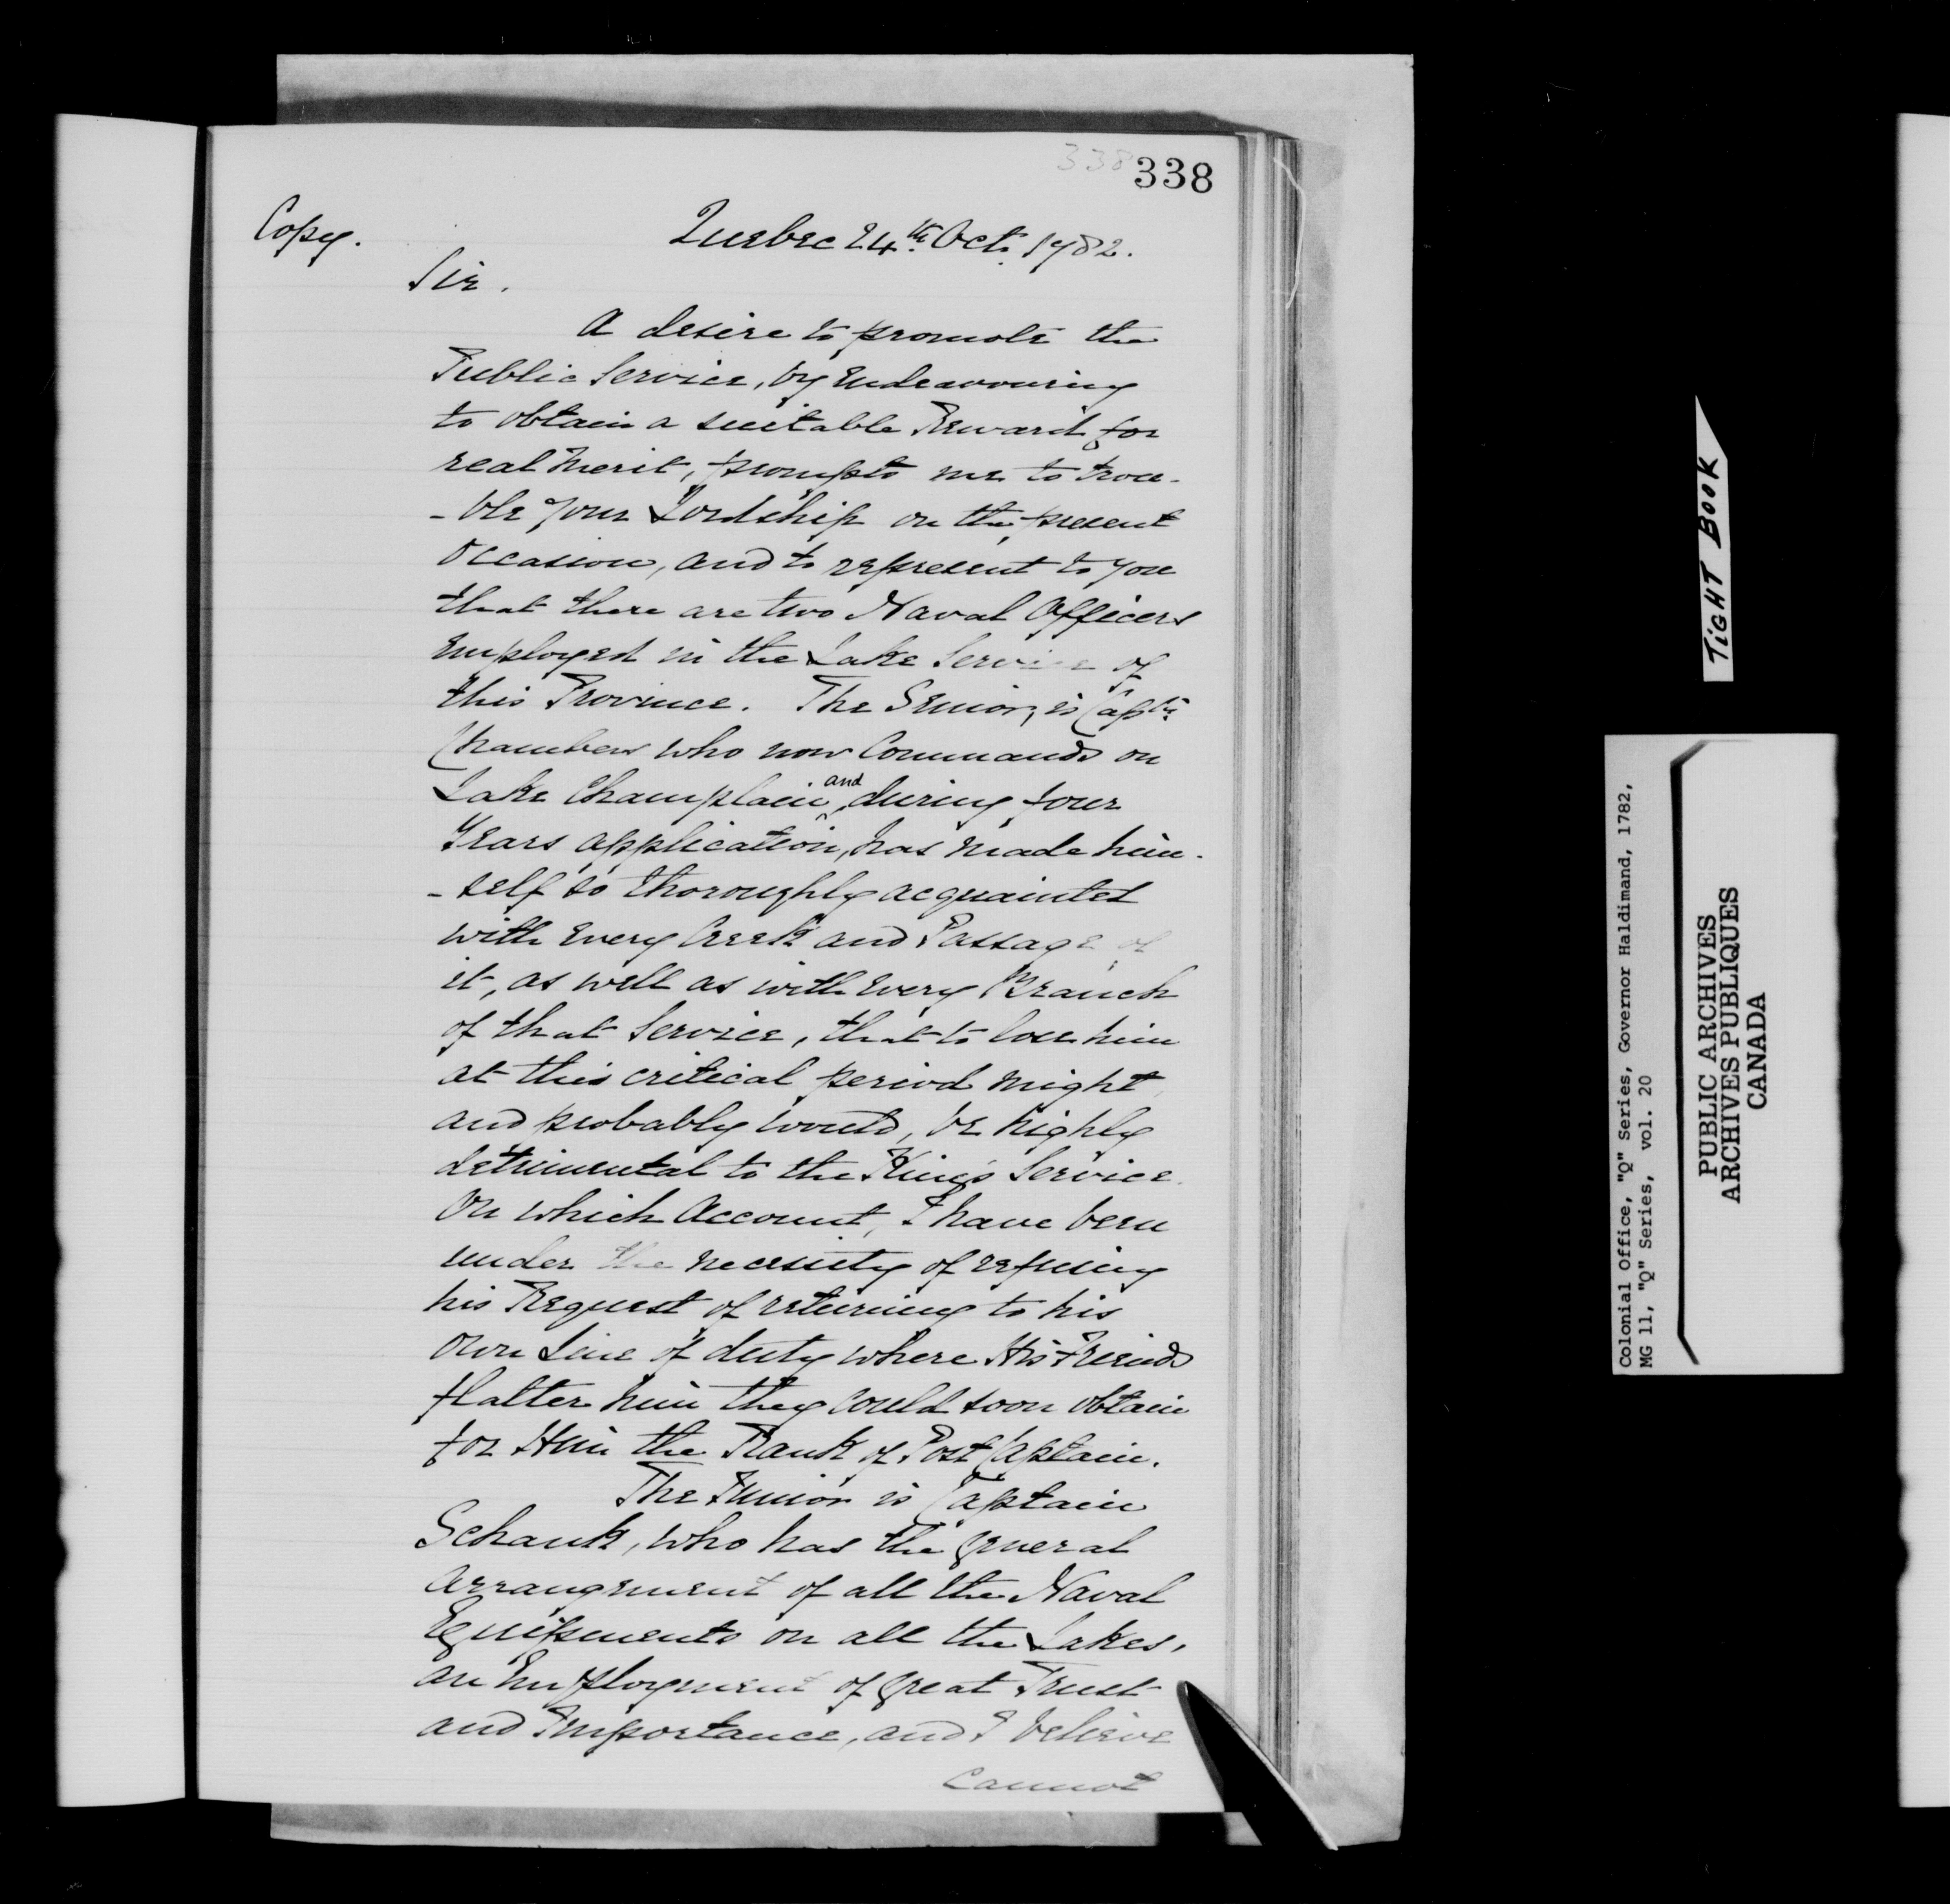 338 338
Copy.
Quebec 24th. Oct. 1782.
Sir.
A desire to promote the
Public Service, by Endeavouring
to obtain a suitable Reward for
real Merit, prompts me to trou-
-ble your Lordship on the present
Occasion, and to represent to you
that there are two Naval Officers
Employed in the Lake Service of
this Province. The Senior, is Captn.
Chambers who now Commands on
Lake Champlain and during four
Years application, has made him-
-self so thoroughly acquainted
with Every Creek and Passage of
it, as well as with Every Branch
of that Service, that to lose him
at this critical period might,
and probably would, be highly
detrimental to the King's Service.
On which Account, I have been
under the necessity of refusing
his Request of returning to his
own Line of duty where His Friends
flatter him they could soon obtain
for Him the Rank of Post Captain.
The Junior is Captain
Schank, who has the general
Arrangement of all the Naval
Equipments on all the Lakes,
an Employment of great Trust
and Importance, and I believe
cannot
TIGHT BOOK
Colonial Office, "Q" Series, Governor Haldimand, 1782,
MG 11, "Q" Series, vol. 20
PUBLIC ARCHIVES
ARCHIVES PUBLIQUES
CANADA